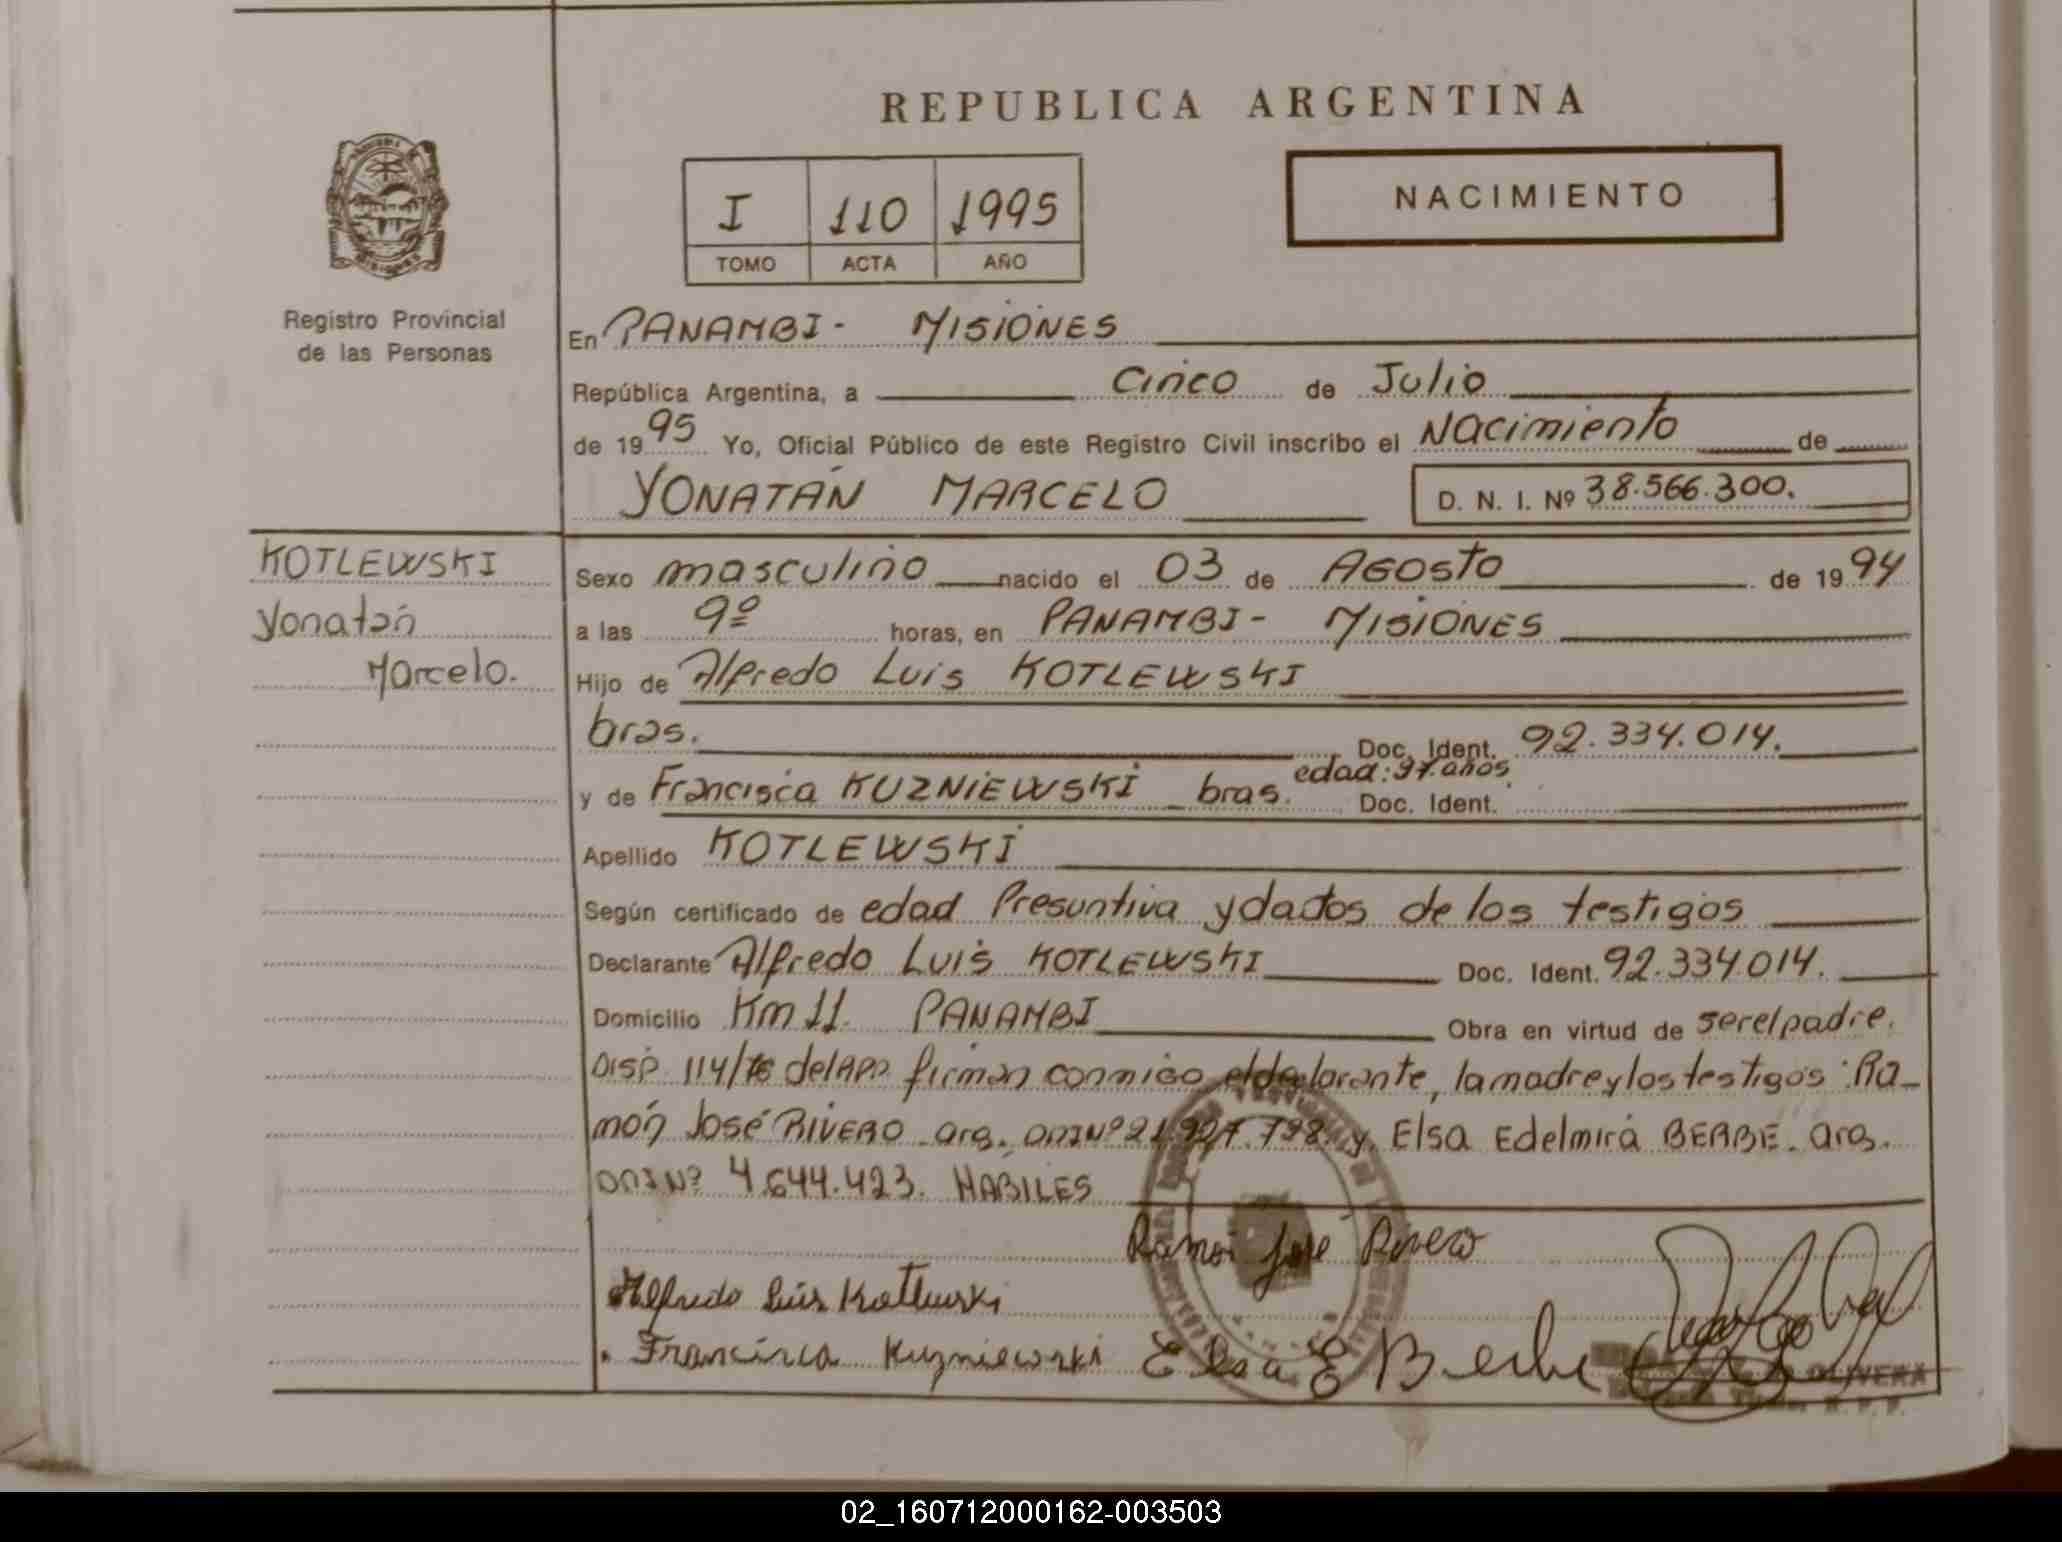 REPUBLICA ARGENTINA
I 110 1995
TOMO ACTA AÑO
NACIMIENTO
Registro Provincial
de las Personas
En PANAMBI - MISIONES
República Argentina, a Cinco de Julio
de 1995 Yo, Oficial Público de este Registro Civil inscribo el Nacimiento de
YONATAN MARCELO D. N. I. Nº 38.566.300.
KOTLEWSKI
Yonatan
Marcelo.
Sexo masculino nacido el 03 de AGOSTO de 1994
a las 9º horas, en PANAMBI - MISIONES
Hijo de Alfredo Luis KOTLEWSKI
bras. Doc. Ident. 92.334.014.
y de Francisca KUZNIEWSKI bras. edad: 37 años. Doc. Ident.
Apellido KOTLEWSKI
Según certificado de edad Presuntiva y dados de los testigos
Declarante Alfredo Luis KOTLEWSKI Doc. Ident. 92.334.014.
Domicilio Km 11. PANAMBI Obra en virtud de ser el padre.
DISP. 114/76 del firman conmigo el declarante, la madre y los testigos: Ra-
món José RIVERO arg. DNI Nº 21.927.798 y Elsa Edelmira BERBE. arg.
DNI Nº 4.644.423. HABILES
Ramon José Rivero
Alfredo Luis Kotlewski
Francisca Kuzniewski Elsa E Berbe
OLIVERA
02_160712000162-003503